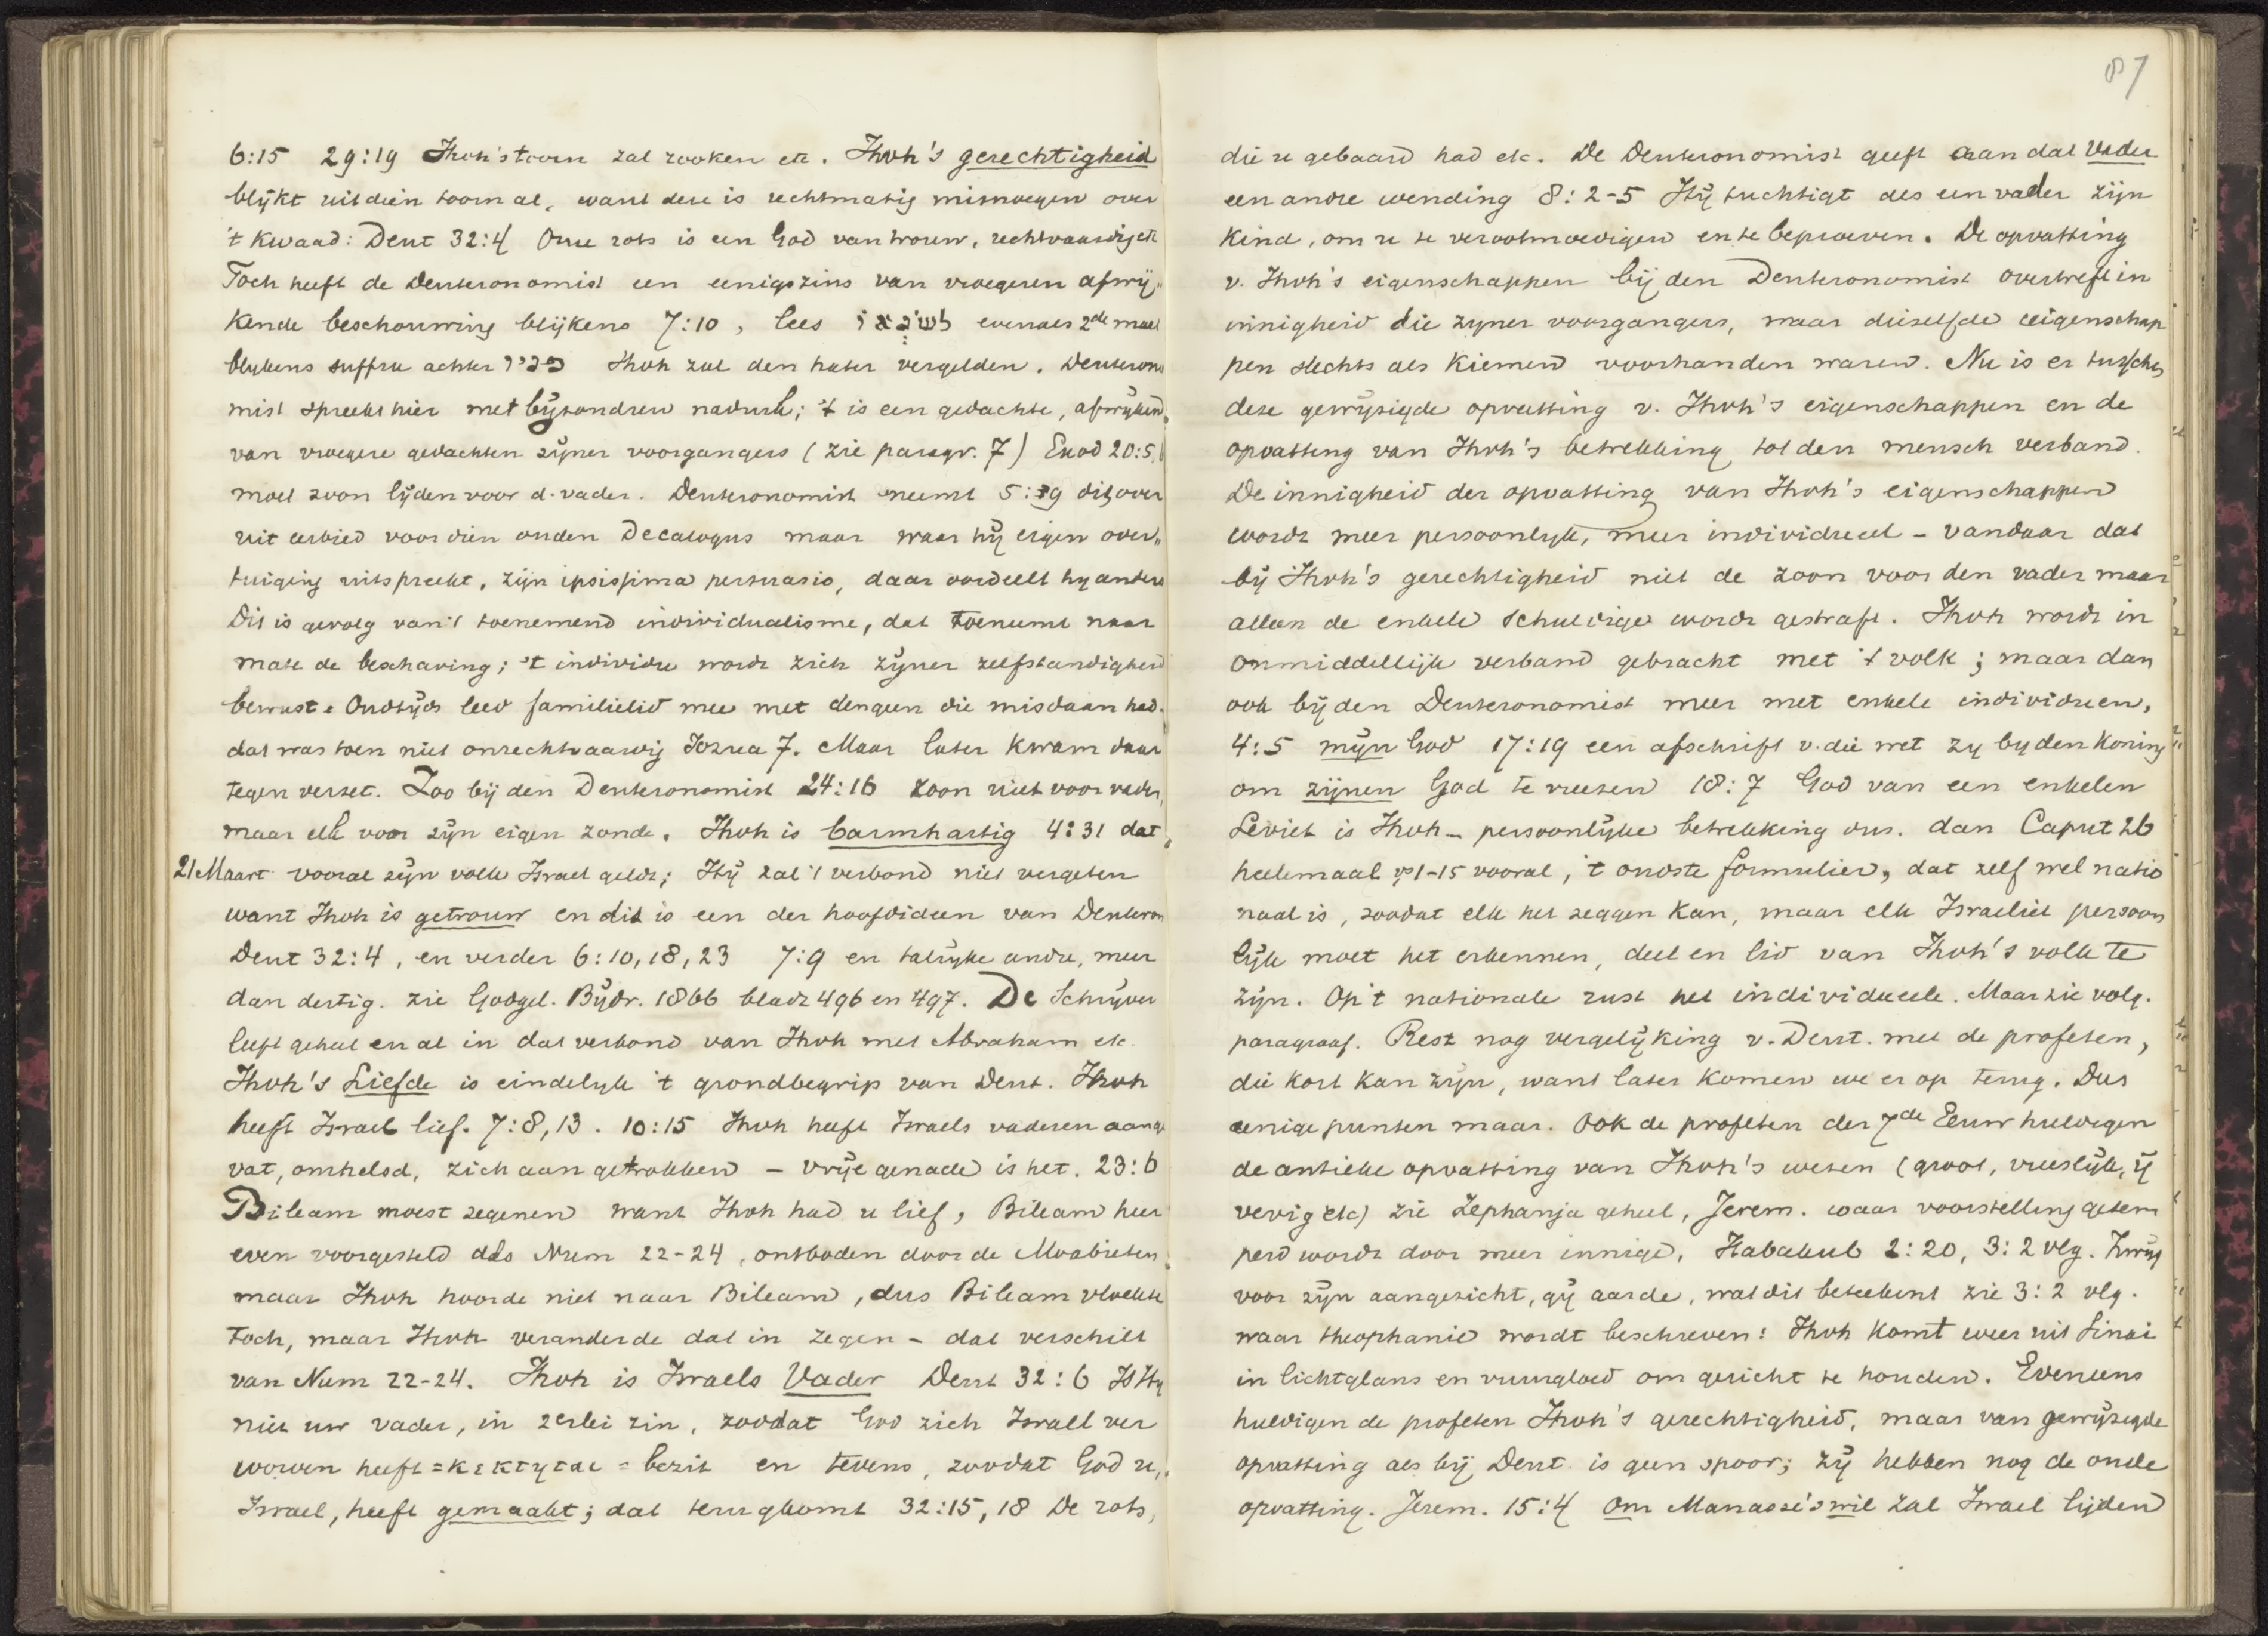 6:15 29:19 Jhvh's toorn zal rooken etc. Jhvh's gerechtigheid
blijkt uit dien toorn al, want deze is rechtmatig misnoegen over
't kwaad: Deut 32:4 Onze rots is een God van trouw, rechtvaardig etc
Toch heeft de Deuteronomist een eenigszins van vroegeren afwij„
kende beschouwing blijkens 7:10, lees לשנאו evenals 2de maal
blijkens suffix achter פניו Jhvh zal den hater vergelden. Deuterono
mist spreekt hier met bijzondren nadruk; 't is een gedachte, afwijkend„
van vroegere gedachten zijner voorgangers (zie paragr. 7) Exod 20:5,6
moet zoon lijden voor d. vader. Deuteronomist neemt 5:9 dit over
uit eerbied voor dien ouden Decalogus maar waar hij eigen over„
tuiging uitspreekt, zijn ipsissima persuasio, daar oordeelt hy anders
Dit is gevolg van 't toenemend individualisme, dat toeneemt naar
mate de beschaving; 't individu wordt zich zijner zelfstandigheid
bewust. Oudtijds leed familielid mee met dengeen die misdaan had.
dat was toen niet onrechtvaardig Jozua 7. Maar later kwam daar
tegen verzet. Zoo bij den Deuteronomist 24:16 zoon niet voor vader,
maar elk voor zijn eigen zonde. Jhvh is barmhartig 4:31 dat„
21 Maart vooral zijn volk Israel geldt; Hij zal 't verbond niet vergeten
want Jhvh is getrouw en dit is een der hoofdideen van Deuteron
Deut 32:4, en verder 6:10, 18, 23 7:9 en talrijke andre, meer
dan dertig. zie Godgel. Bijdr. 1866 bladz 496 en 497. De Schrijver
leeft geheel en al in dat verbond van Jhvh met Abraham etc.
Jhvh's Liefde is eindelijk 't grondbegrip van Deut. Jhvh
heeft Israel lief. 7:8, 13. 10:15 Jhvh heeft Israels vaderen aange
vat, omhelsd, zich aan getrokken – vrije genade is het. 23:6
Bileam moest zegenen want Jhvh had u lief, Bileam hier
even voorgesteld als Num 22-24, ontboden door de Moabieten„
maar Jhvh hoorde niet naar Bileam, dus Bileam vloekte
toch, maar Jhvh veranderde dat in zegen – dat verschilt
van Num 22-24. Jhvh is Israels Vader Deut 32:6 Is Hij
niet uw vader, in 2erlei zin, zoodat God zich Israel ver
worven heeft = κεκτηται = bezit en tevens, zoodat God u,.
Israel, heeft gemaakt; dat terugkomt 32:15, 18 De rots,
87
die u gebaard had etc. De Deuteronomist geeft aan dat Vader
een andre wending 8:2-5 Hij tuchtigt als een vader zijn
kind, om u te verootmoedigen en te beproeven. De opvatting
v. Jhvh's eigenschappen bij den Deuteronomist overtreft in
innigheid die zijner voorgangers, maar diezelfde eigenschap
pen slechts als kiemen voorhanden waren. Nu is er tusschen
deze gewijzigde opvatting v. Jhvh's eigenschappen en de
opvatting van Jhvh's betrekking tot den mensch verband.
De innigheid der opvatting van Jhvh's eigenschappen
wordt meer persoonlijk, meer individueel – vandaar dat
bij Jhvh's gerechtigheid niet de zoon voor den vader maar
alleen de enkele schuldige wordt gestraft. Jhvh wordt in
onmiddellijk verband gebracht met 't volk; maar dan
ook bij den Deuteronomist meer met enkele individuen,
4:5 mijn God 17:19 een afschrift v. die wet zy by den koning
om zijnen God te vreezen 18:7 God van een enkelen
Leviet is Jhvh – persoonlijke betrekking dus. dan Caput 26
heelemaal vs 1-15 vooral, 't oudste formulier, dat zelf wel natio
naal is, zoodat elk het zeggen kan, maar elk Israeliet persoon
lijk moet het erkennen, deel en lid van Jhvh's volk te
zijn. Op 't nationale rust het individueele. Maar zie volg.
paragraaf. Rest nog vergelijking v. Deut. met de profeten,
die kort kan zijn, want later komen we er op terug. Dus
eenige punten maar. Ook de profeten der 7de Eeuw huldigen
de antieke opvatting van Jhvh's wezen (groot, vreeslijk, ij
verig etc) zie Zephanja geheel, Jerem. waar voorstelling getem
perd wordt door meer innige, Habakuk 2:20, 3:2 vlg. Zwijg
voor zijn aangezicht, gij aarde, wat dit beteekent zie 3:2 vlg.
waar theophanie wordt beschreven: Jhvh komt weer uit Sinai
in lichtglans en vuurgloed om gericht te houden. Eveneens
huldigen de profeten Jhvh's gerechtigheid, maar van gewijzigde
opvatting als bij Deut. is geen spoor; zij hebben nog de oude
opvatting. Jerem. 15:4 Om Manasse's wil zal Israel lijden